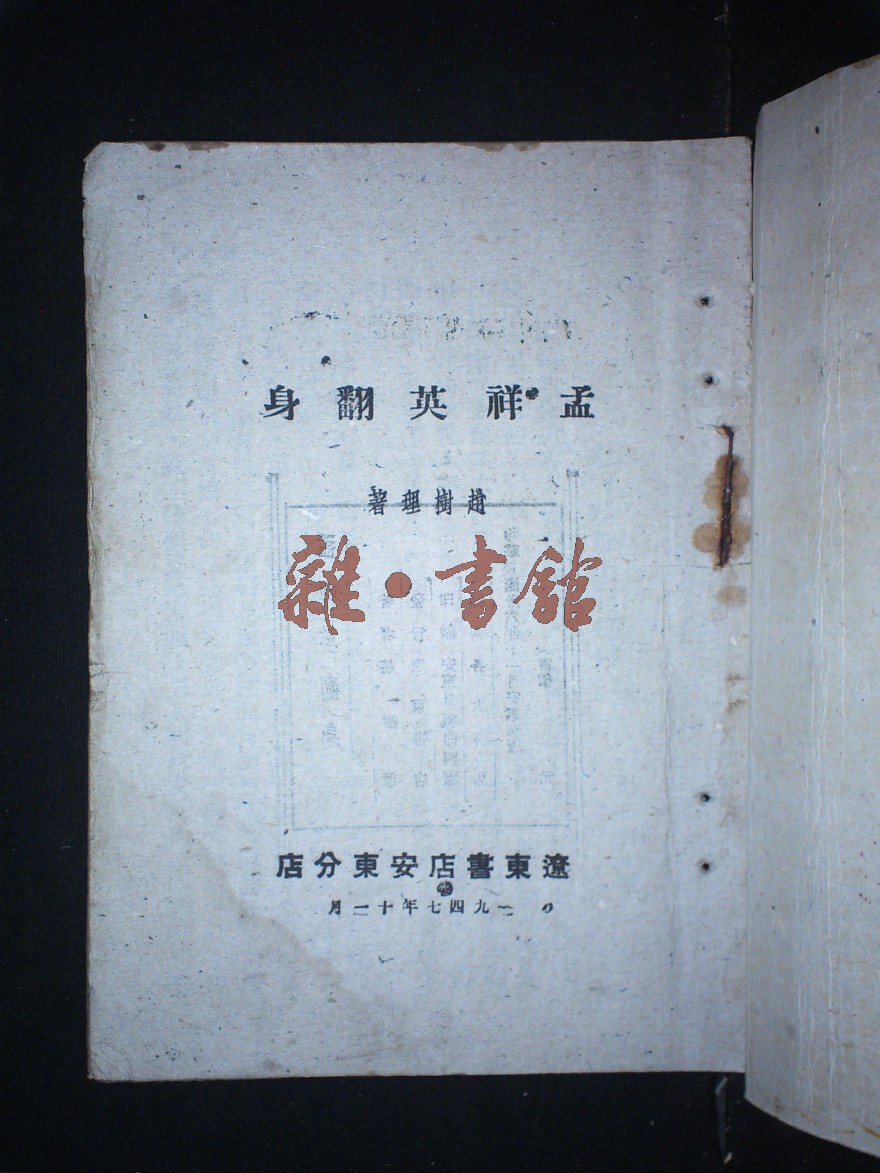 孟祥英翻身
趙樹理著
雜·書館
遼東書店安東分店
一九四七年十一月